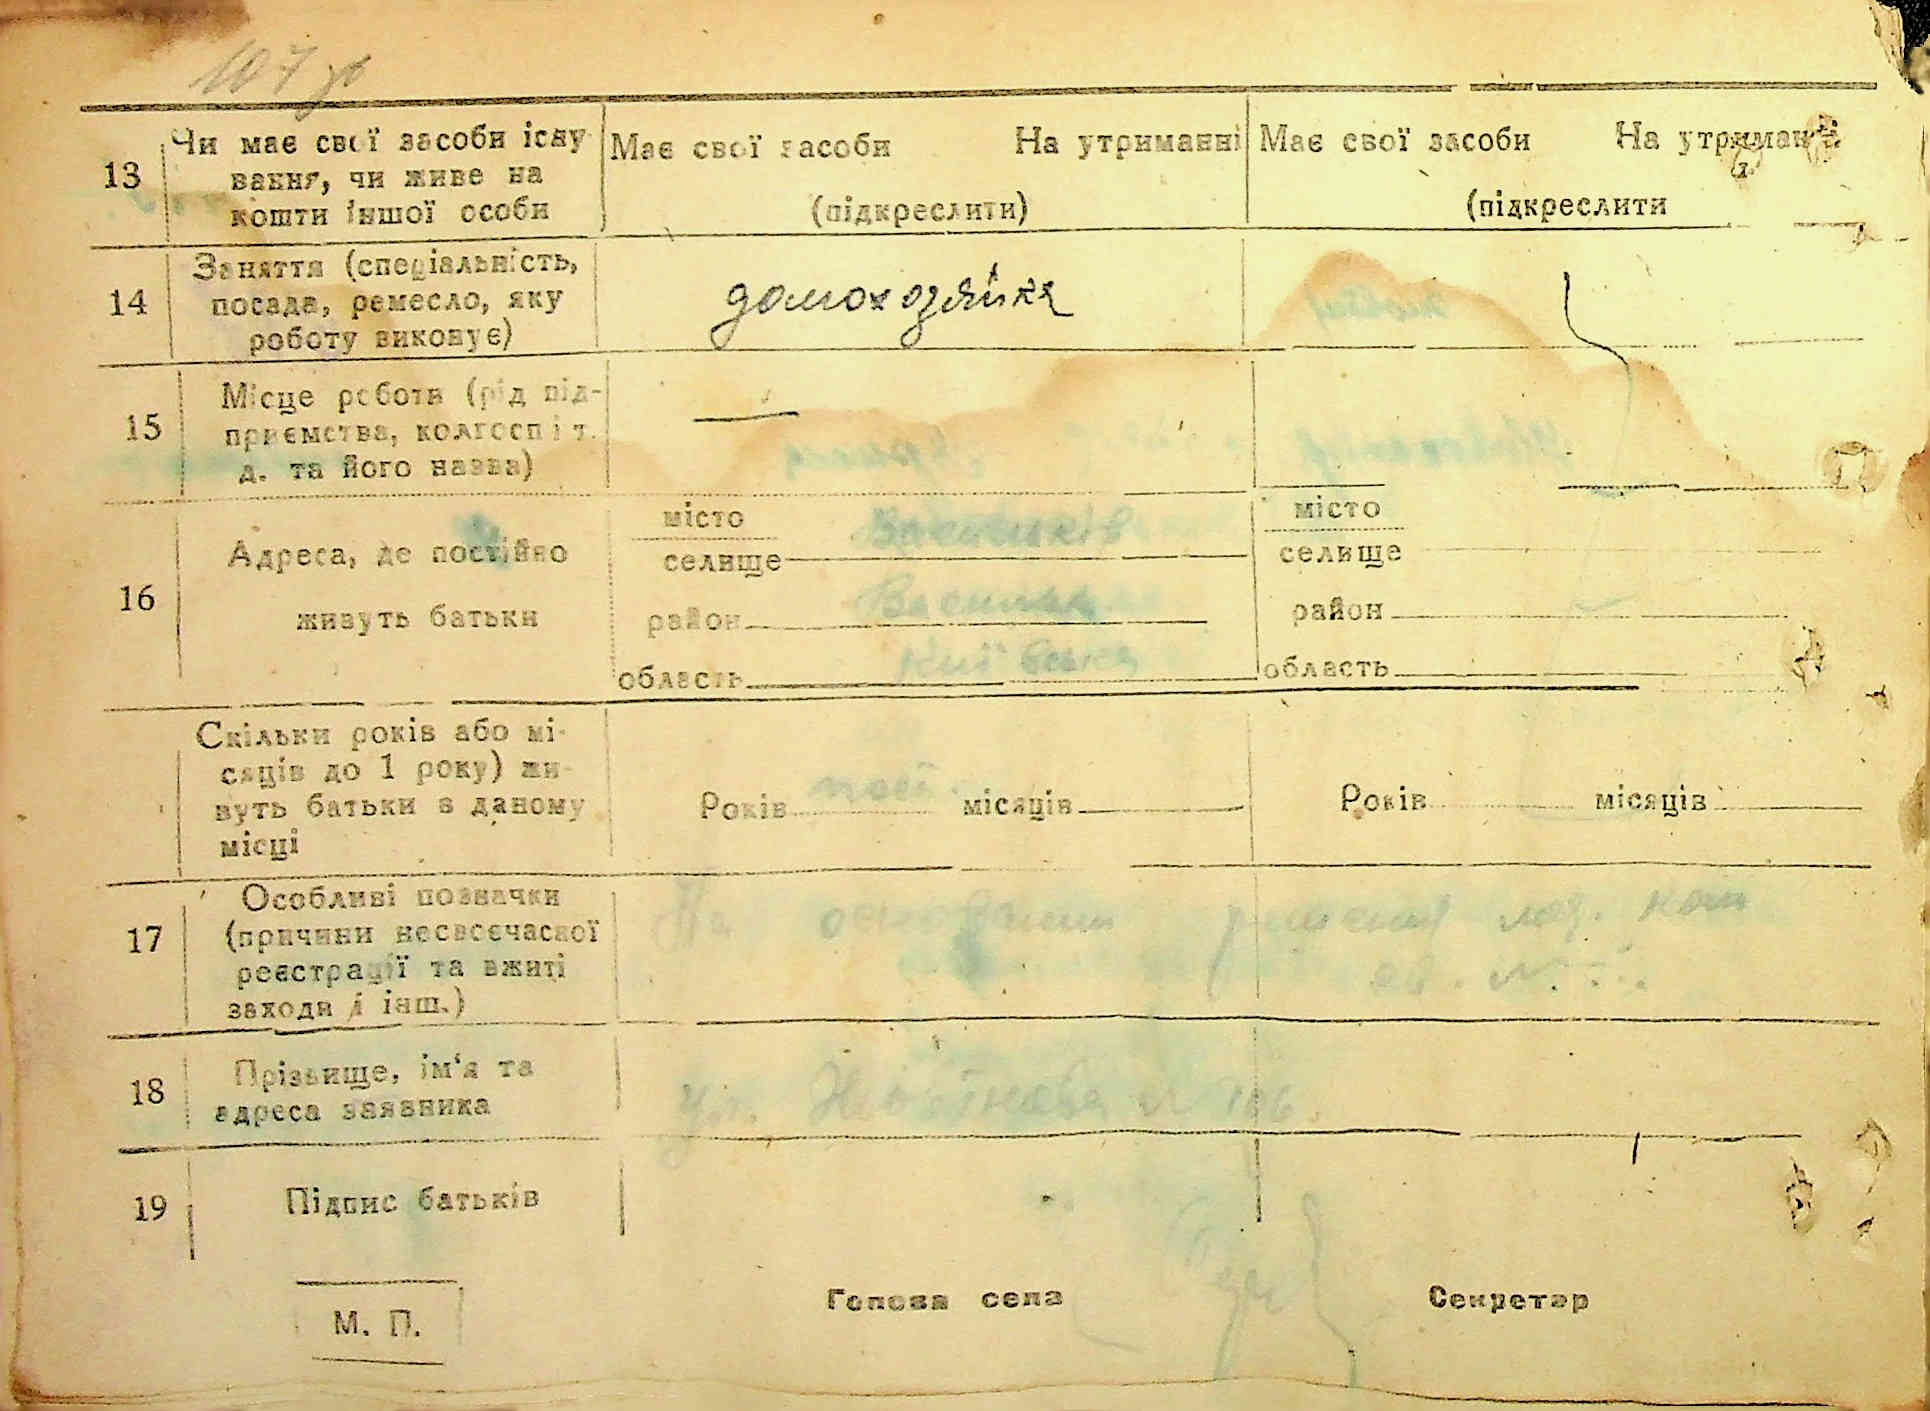 107
13
Чи має свої засоби існу-
вання, чи живе на
кошти іншої особи
Має свої засоби На утриманні
(підкреслити)
Має свої засоби На утриман і
(підкреслити
14
Заняття (спеціальність,
посада, ремесло, яку
роботу виконує)
домохозяйка
15
Місце роботи (рід під-
приємства, колгосп і т.
д. та його назва)
—
16
Адреса, де постійно
живуть батьки
місто Васильків
селище
район Васильк
область Київська
місто
селище
район
область
Скільки років або мі-
сяців до 1 року) жи-
вуть батьки в даному
місці
Років пост. місяців
Років місяців
17
Особливі позначки
(причини несвоєчасної
реєстрації та вжиті
заходи і інш.)
На основании решения
18
Прізвище, ім'я та
адреса заявника
ул. № 106.
19
Підпис батьків
М. П.
Голова села
Секретар